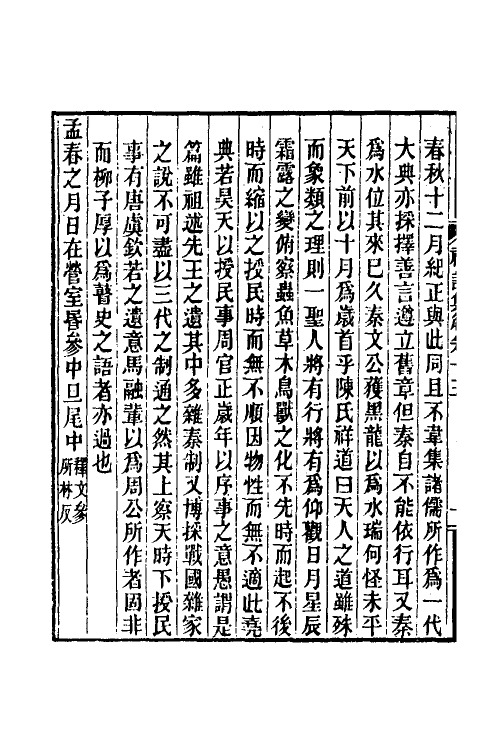 春秋十二月紀正與此同且不韋集諸儒所作爲一代
大典亦採擇善言遵立舊章但秦自不能依行耳又秦
爲水位其來已久秦文公獲黑龍以爲水瑞何怪未平
天下前以十月爲歲首乎陳氏祥道曰天人之道雖殊
而象類之理則一聖人將有行將有爲仰觀日月星辰
霜露之變俯察蟲魚草木鳥獸之化不先時而起不後
時而縮以之授民時而無不順因物性而無不適此堯
典若昊天以授民事周官正歲年以序事之意愚謂是
篇雖祖述先王之遺其中多雜秦制又博採戰國雜家
之說不可盡以三代之制通之然其上察天時下授民
事有唐虞欽若之遺意馬融輩以爲周公所作者固非
而柳子厚以爲瞽史之語者亦過也
孟春之月日在營室昏參中旦尾中釋文參所林反